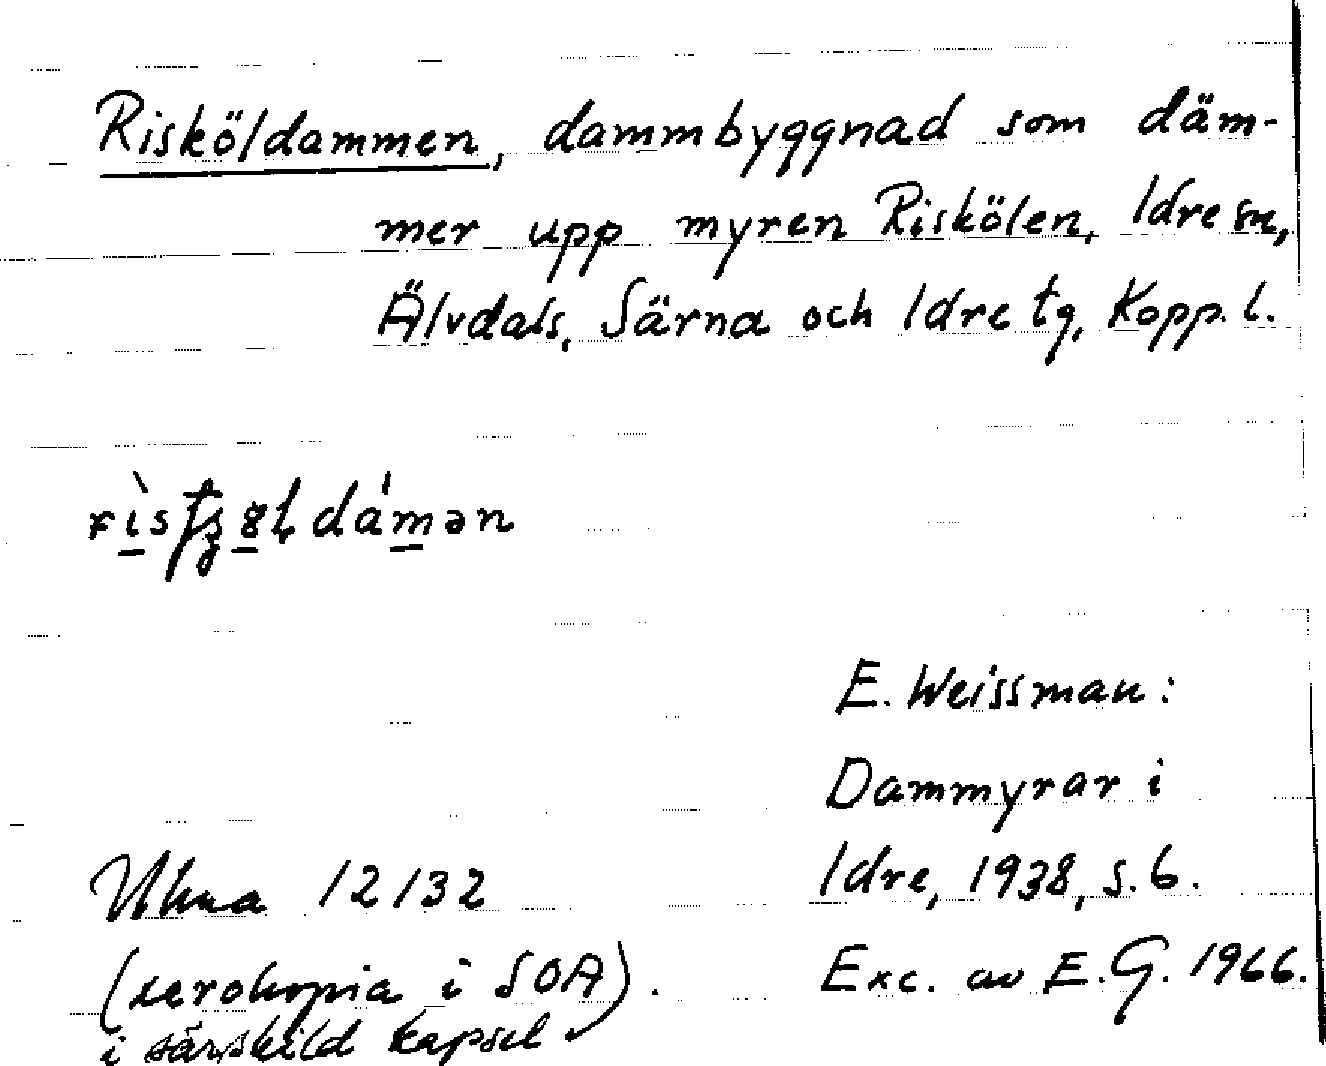 Risköldammen, dammbyggnad som däm-
mer upp myren Riskölen, Idre sn,
Älvdals, Särna och Idre tg, Kopp. l.
E. Weissman:
Dammyrar i
Idre, 1938, s. 6.
Exc. av E. G. 1966.
12132
(xerokopia i SOA).
i särskild kapsel